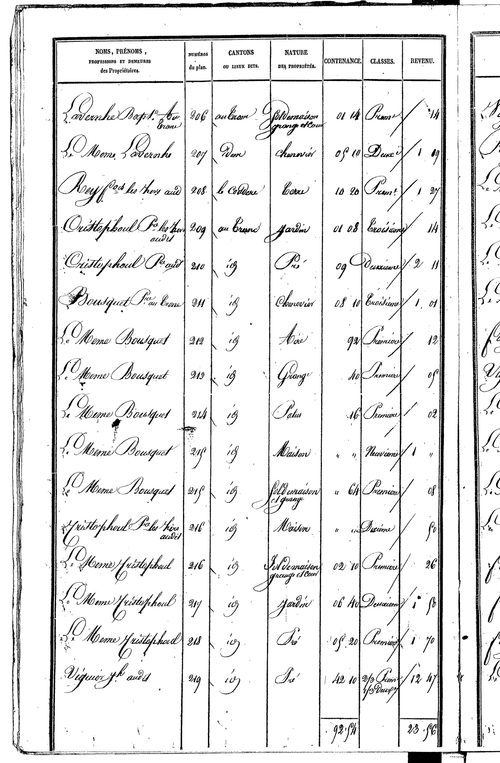 NOMS, PRÉNOMS,
PROFESSIONS ET DEMEURES
des Propriétaires.
NUMÉROS
du plan.
CANTONS
OU LIEUX DITS.
NATURE
DES PROPRIÉTÉS.
CONTENANCE.
CLASSES.
REVENU.
Lavernhe Bapt.te 206 au Trane Sol de maison grange et cour 01 14 Prem.e / 14
Le Meme Lavernhe 207 idem chenevier 05 10 Deux.e / 1 19
Rey f.cois les hoirs aud 208 Terre 10 20 Prem.e / 1 27
Cristophoul P.re les hoirs audit 209 au Trane Jardin 01 08 Troisieme / 14
Cristophoul P.re aud 210 id Pré 09 Deuxieme / 2 11
Bousquet P.re au Trane 211 id chenevier 08 10 Troisieme / 1 01
Le Meme Bousquet 212 id Aire 92 Premiere / 12
Le Meme Bousquet 213 id Grange 40 Premiere / 05
Le Meme Bousquet 214 id Patus 16 Premiere / 02
Le Meme Bousquet 215 id Maison " " Neuvieme / 1 "
Le Meme Bousquet 215 id Sol de maison et grange " 64 Premiere / 08
Cristophoul P.re les hoirs audit 216 id Maison " " Dixieme / 50
Le Meme Cristophoul 216 id Sol de maison grange et cour 02 10 Premiere / 26
Le Meme Cristophoul 217 id Jardin 06 40 Deuxieme / 1 53
Le Meme Cristophoul 218 id Pré 05 20 Premiere / 1 70
Viguier J.h audit 219 id Pré 42 10 2/3 Prem 1/3 Deux / 12 47
92 54 23 56